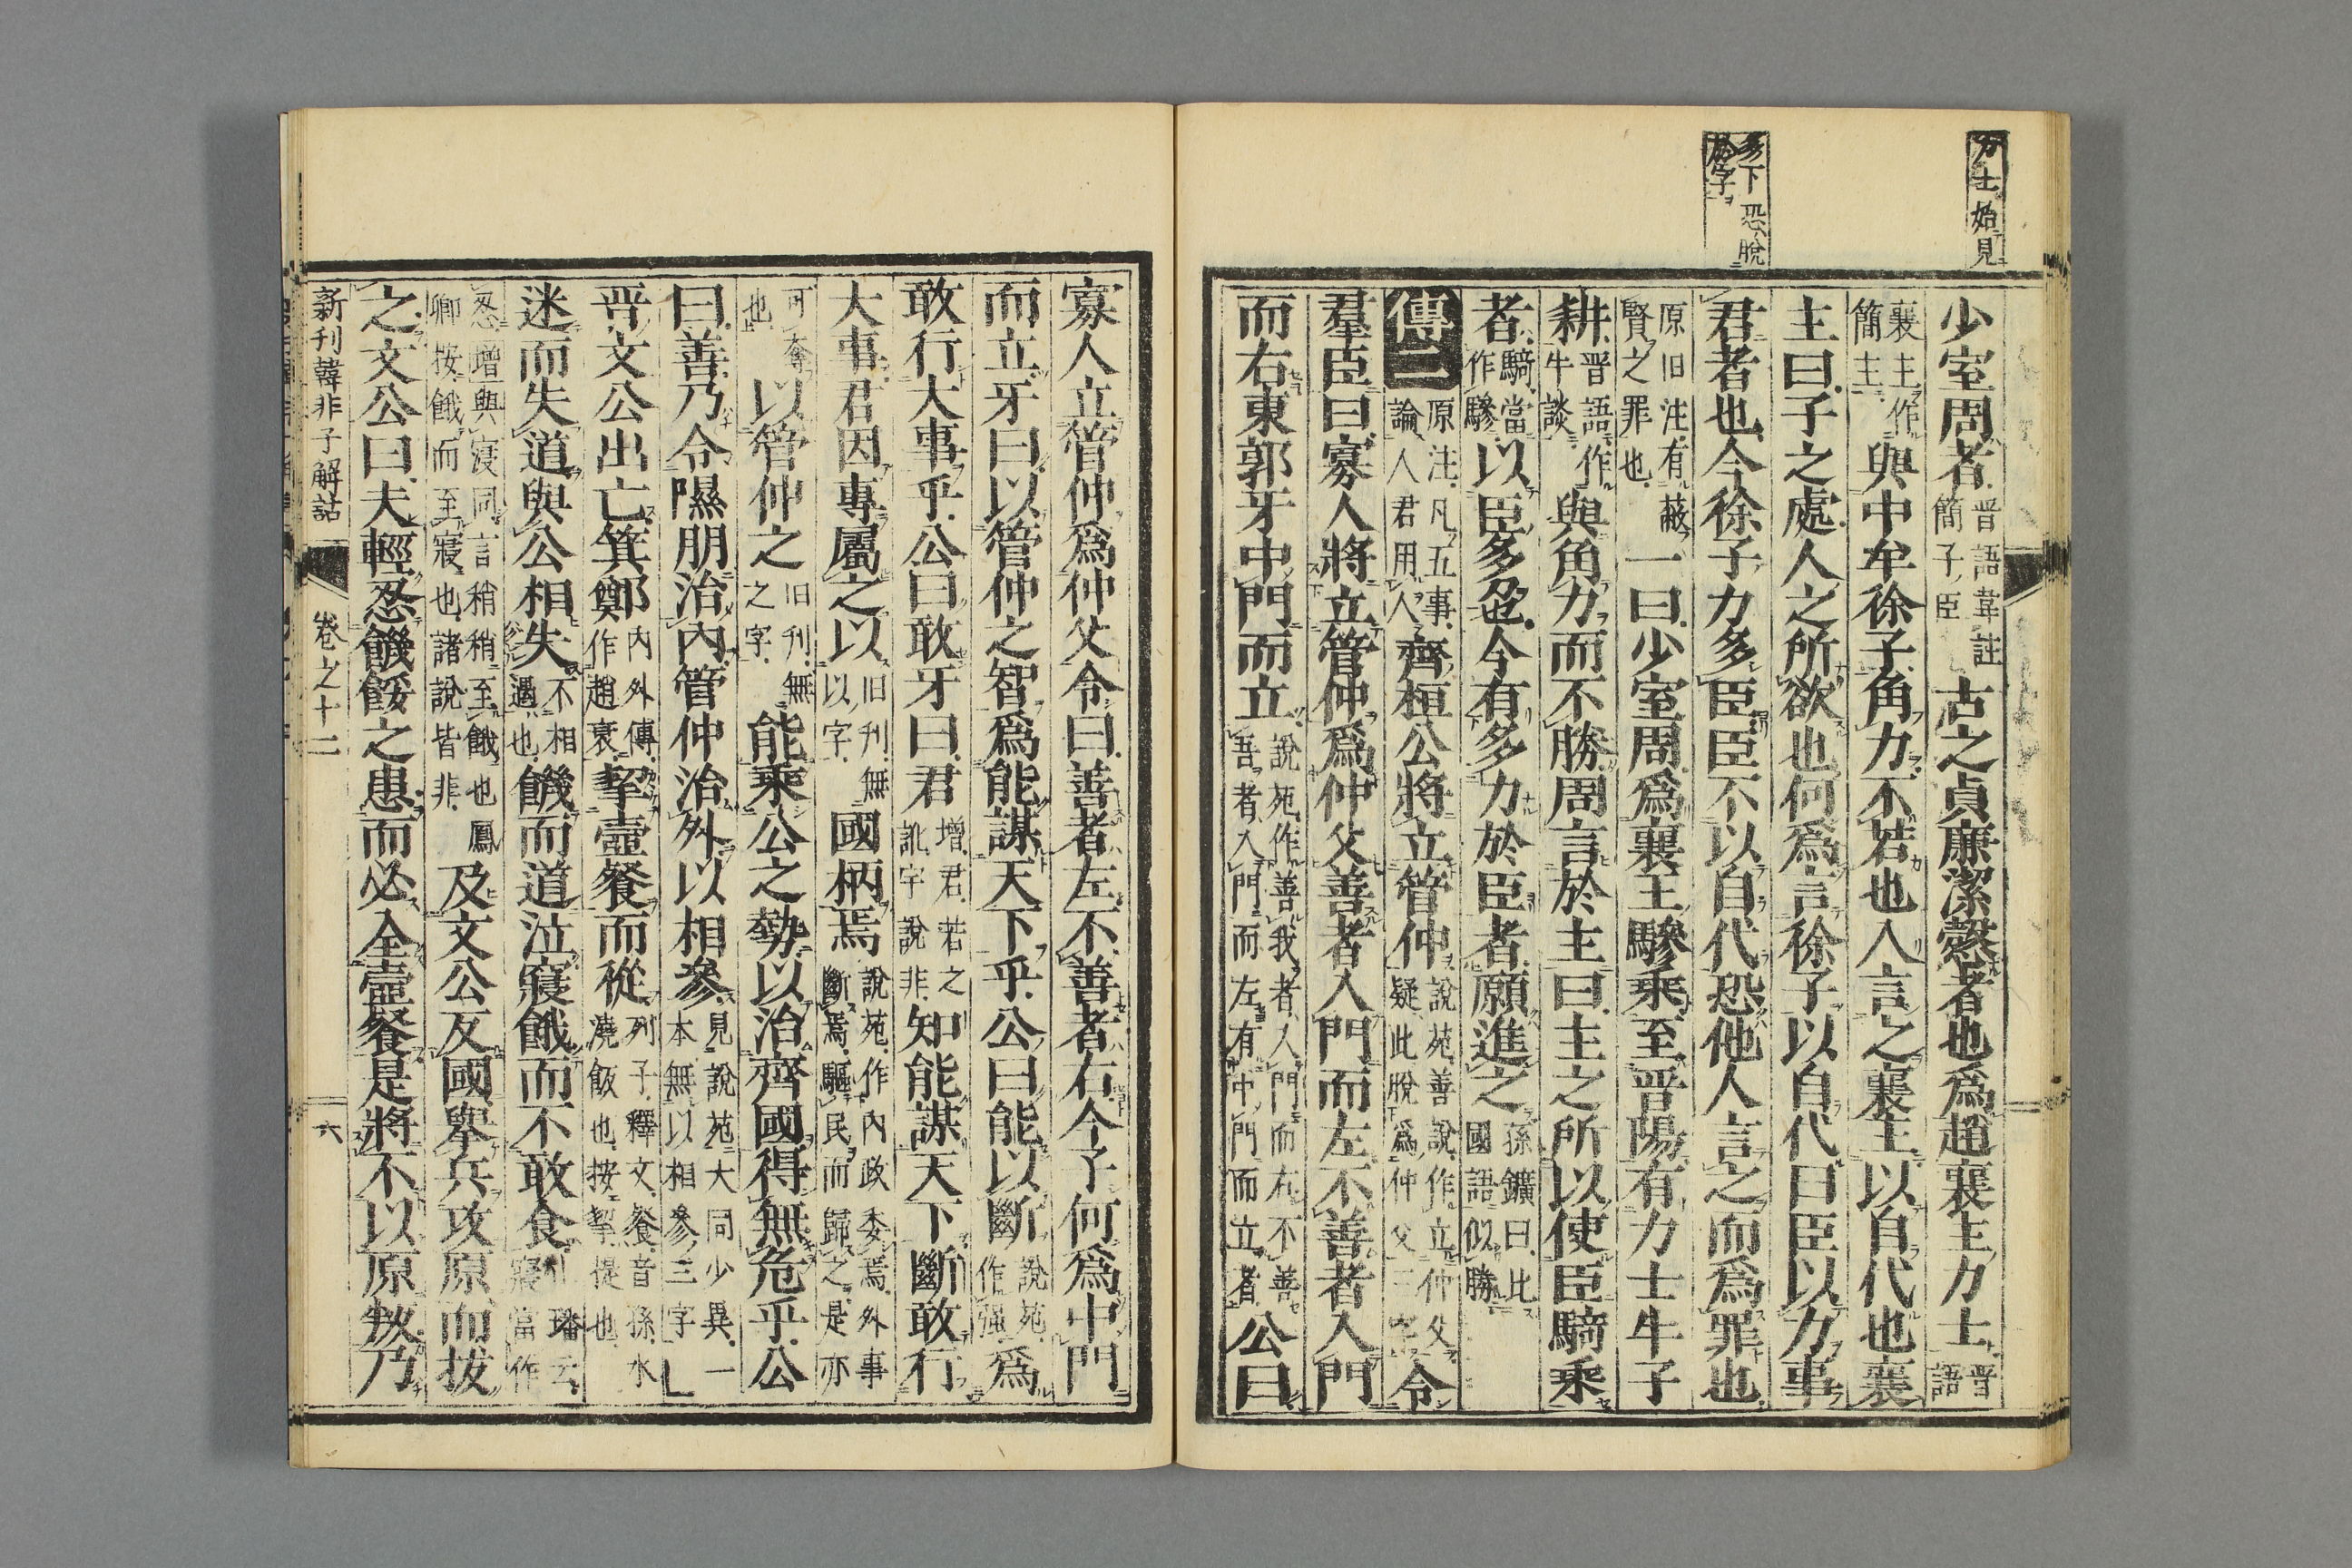 力士始見
多下恐脫
於字
少室周者晋語韋註簡子臣古之貞廉潔慤者也爲趙襄主力士晋語
襄主作簡主與中牟徐子角力不若也入言之襄主以自代也襄
主曰子之處人之所欲也何爲言徐子以自代曰臣以力事
君者也今徐子力多臣臣不以自代恐他人言之而爲罪也
原旧注有蔽賢之罪也一曰少室周爲襄主驂乘至晋陽有力士牛子
耕晋語作牛談與角力而不勝周言於主曰主之所以使臣騎乘
者騎當作驂以臣多力也今有多力於臣者願進之孫鑛曰此國語似勝
傳二原注凡五事論人君用人齊桓公將立管仲說苑善說作立仲父疑此脫爲仲父三字令
羣臣曰寡人將立管仲爲仲父善者入門而左不善者入門
而右東郭牙中門而立說苑作善我者入門而右不善吾者入門而左有中門而立者公曰
寡人立管仲爲仲父令曰善者左不善者右今子何爲中門
而立牙曰以管仲之智爲能謀天下乎公曰能以斷說苑作强爲
敢行大事乎公曰敢牙曰君增君若之訛字說非知能謀天下斷敢行
大事君因專屬之以旧刋無以字國柄焉說苑作內政委焉外事斷焉驅民而歸之是亦
可奪也以管仲之旧刋無之字能乘公之勢以治齊國得無危乎公
曰善乃令隰朋治內管仲治外以相參見說苑大同少異一本無以相參三字
晋文公出亡箕鄭內外傳鄭作趙衰挈壺餐而從列子釋文餐音孫水澆飯也按挈提也
迷而失道與公相失不相遇也饑而道泣寢餓而不敢食璠云寢當作
忍增與寖同言稍稍至餓也鳳卿按餓而至寢也諸說皆非及文公反國擧兵攻原而拔
之文公曰夫輕忍饑餒之患而必全壺餐是將不以原叛乃
新刊韓非子解詁 卷之十二 六